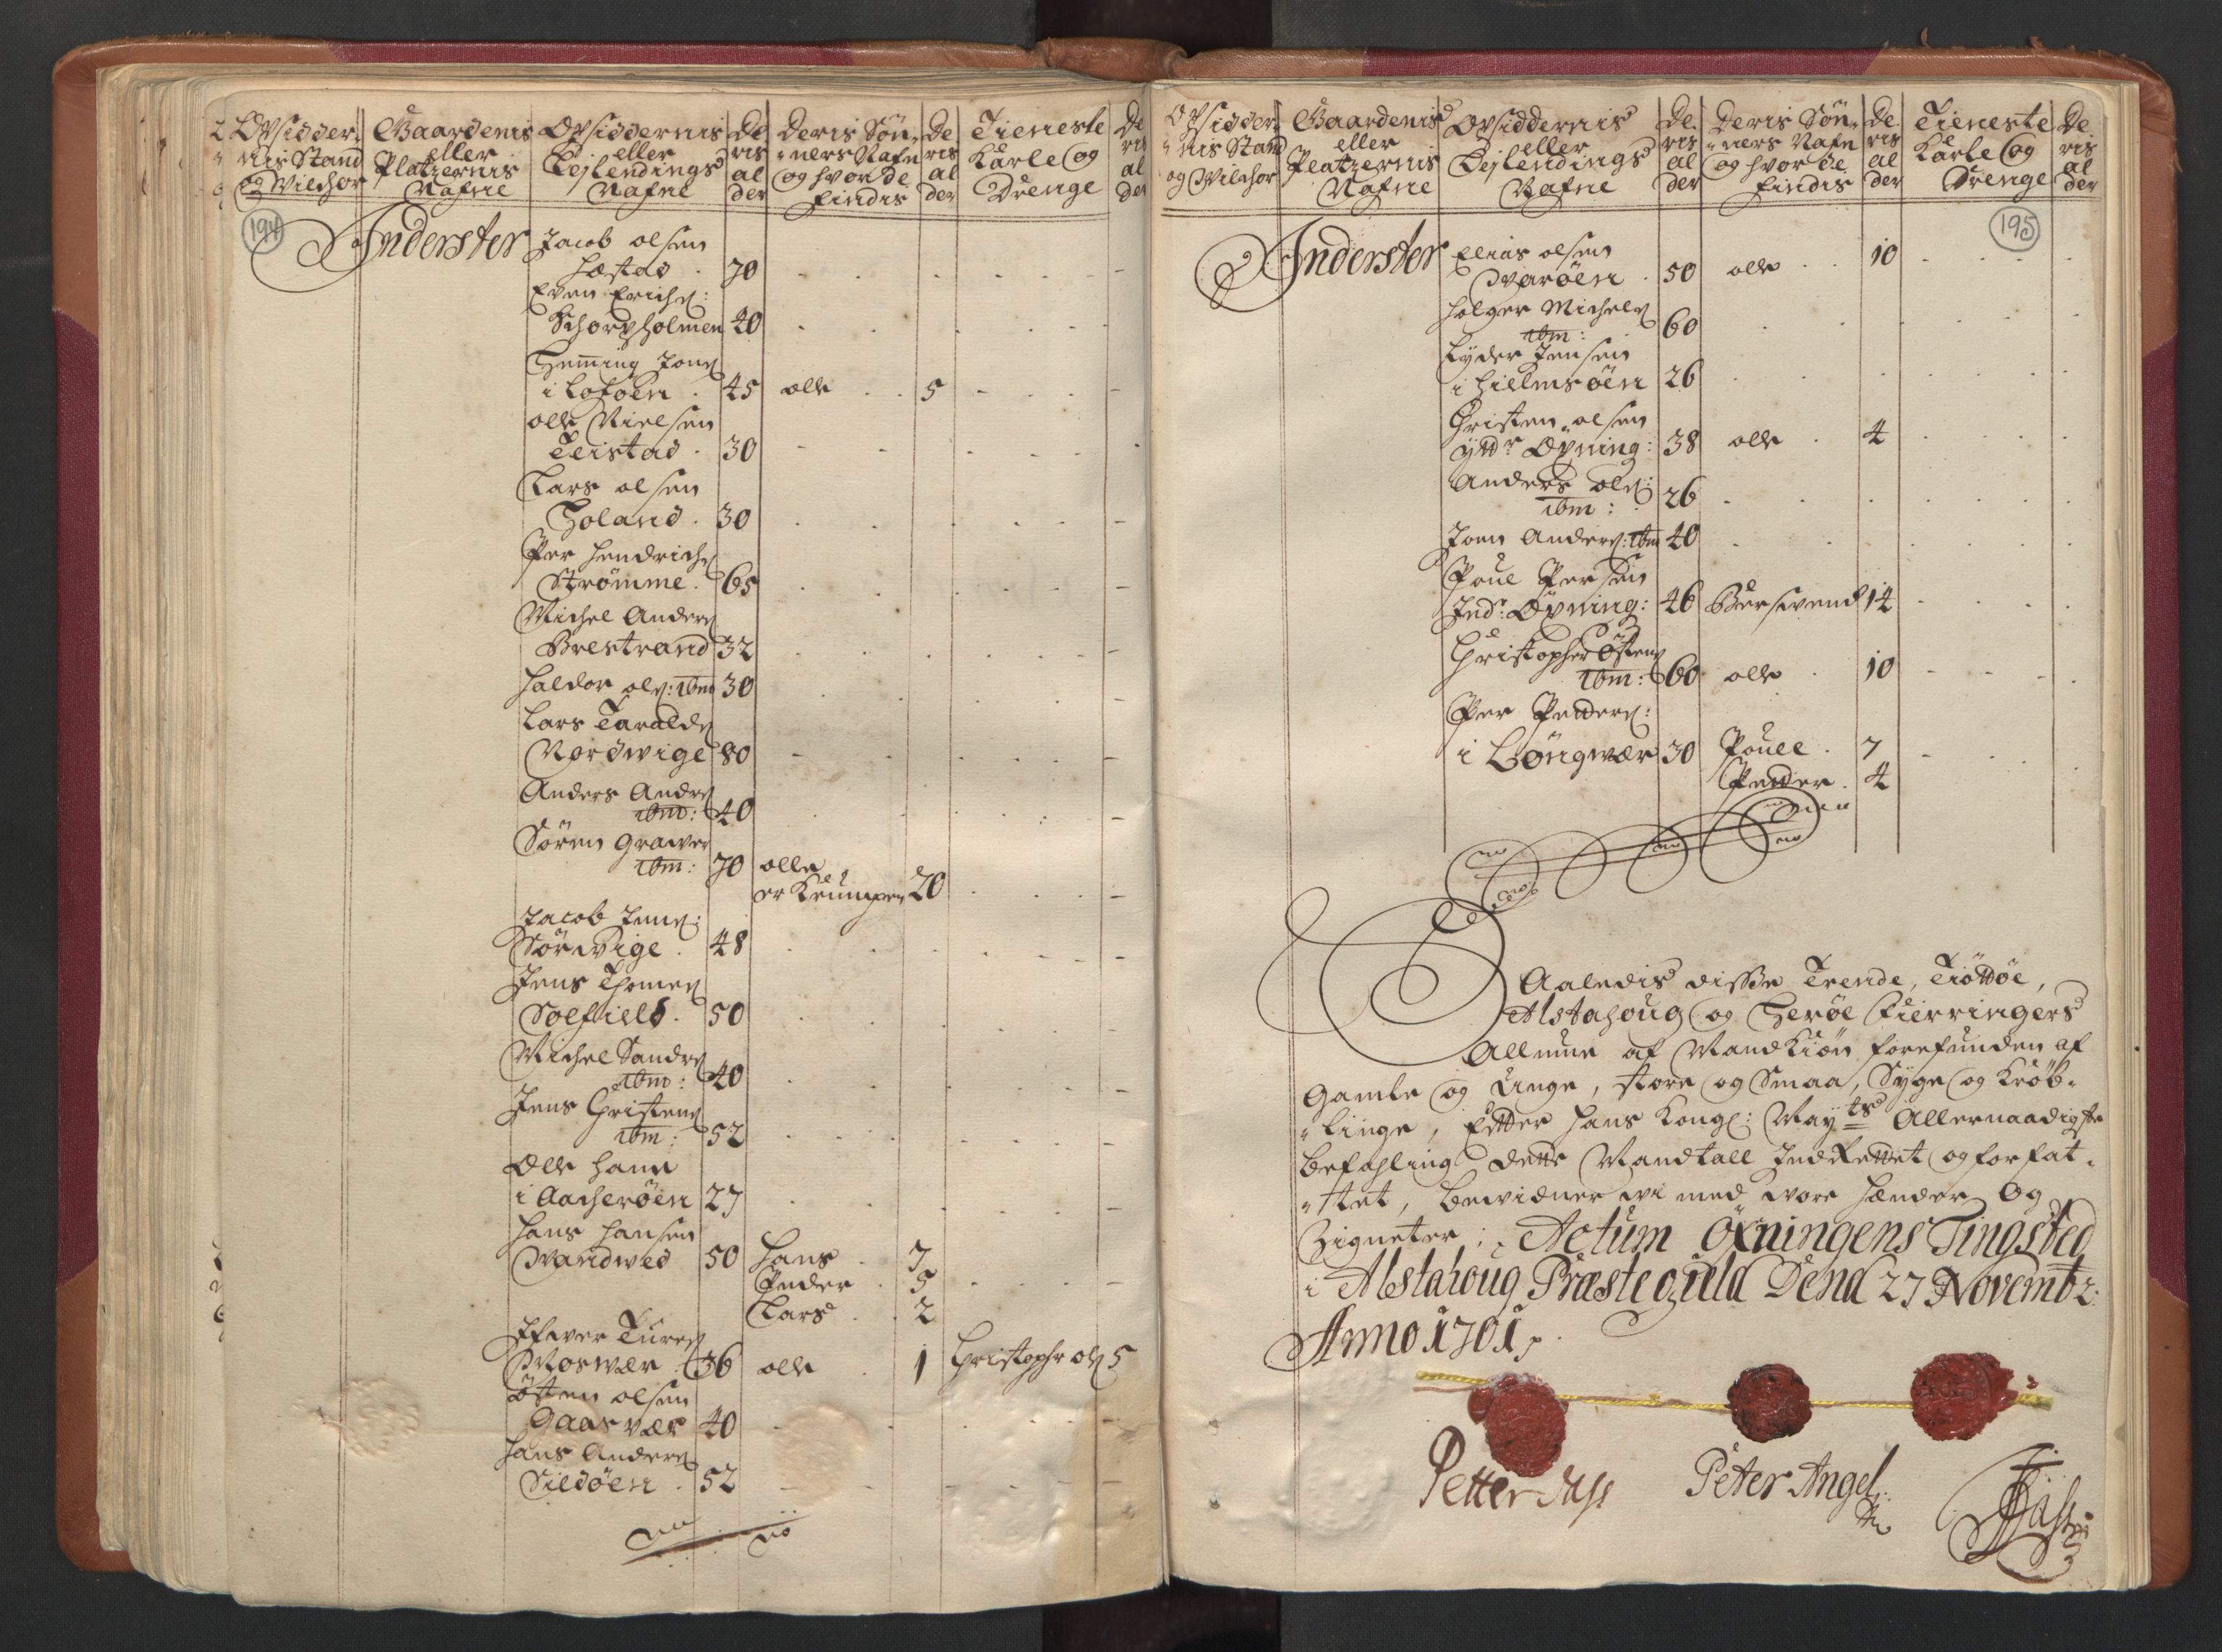 Opsidder-
nis Stand
og Vilchor
Gaardenis
eller
Platzernis
Nafne
Opsiddernis
eller
Lejlendings
Nafne
De
ris
al
der
Deris Søn-
ners Nafn
og hvor de
findis
De
ris
al
der
Tieneste
Karle og
Drenge
De
ris
al
der
194
Inderster
Jacob olsen
Hæstad . 70
Even Erichs:
Schorpholmen 40
Hemming Jons
i Lofoen . 45 olle . . 5
olle Nielsen
Teistad . 30
Lars olsen
Holand . 30
Per Hendrichs
Strømme . 65
Michel Anders
Brestrand 32
Haldor ols: ibm 30
Lars Taralds
Nordwige 80
Anders Andrs
ibm: 40
Søren Grawer
ibm: 70 olle
er Krumpen 20
Jacob Jens:
Sørwige . 48
Jens Thomes
Solfield . 50
Michel Sandrs
ibm: 40
Jens Christens
ibm: 52
Olle Hans
i Aacherøen 27
Hans Hansen
Wandwed 50 Hans . 7
Peder . 5
Lars . . 2
Ifwer Tures
Moswær . 36 olle . 1 Christophr ols 5
østen olsen
Gaasvær 40
Hans Anders
Sildøen . 52
Opsidder-
nis Stand
og Vilchor
Gaardenis
eller
Platzernis
Nafne
Opsiddernis
eller
Lejlendings
Nafne
De
ris
al
der
Deris Søn-
ners Nafn
og hvor de
findis
De
ris
al
der
Tieneste
Karle og
Drenge
De
ris
al
der
195
Inderster
Elias olsen
Warøen . 50 olle . . 10
Holger Michels
ibm: 60
Lyder Jensen
i Hielmsøen 26
Christen olsen
yttr Øxning: 38 olle . 4
Anders ols:
ibm: 26
Joen Anders: ibm 40
Poul Persen
Indr: Øxning: 46 Bersvend 14
Christopher Østens
ibm: 60 olle . 10
Per Petters:
i Løngwær 30 Poull . 7
Petter . 4
Saaledis disse Trende, Tiøttøe,
Alstahoug og Herøe Fierringers
Allmue af Mandkiøn forefunden af
Gamle og Unge, store og Smaa, Syge og Krøb-
linge, Efter Hans Kongl: May:ts Allernaadigste
befahling dette Mandtall Indrettet og forfat-
tet, bewidner wi med wore Hænder og
Zigneter; Actum Øxningens Tingsted
i Alstahoug Præstegield Dend 27 Novembr:
Anno 1701,
Petter Dass
Peter Angel